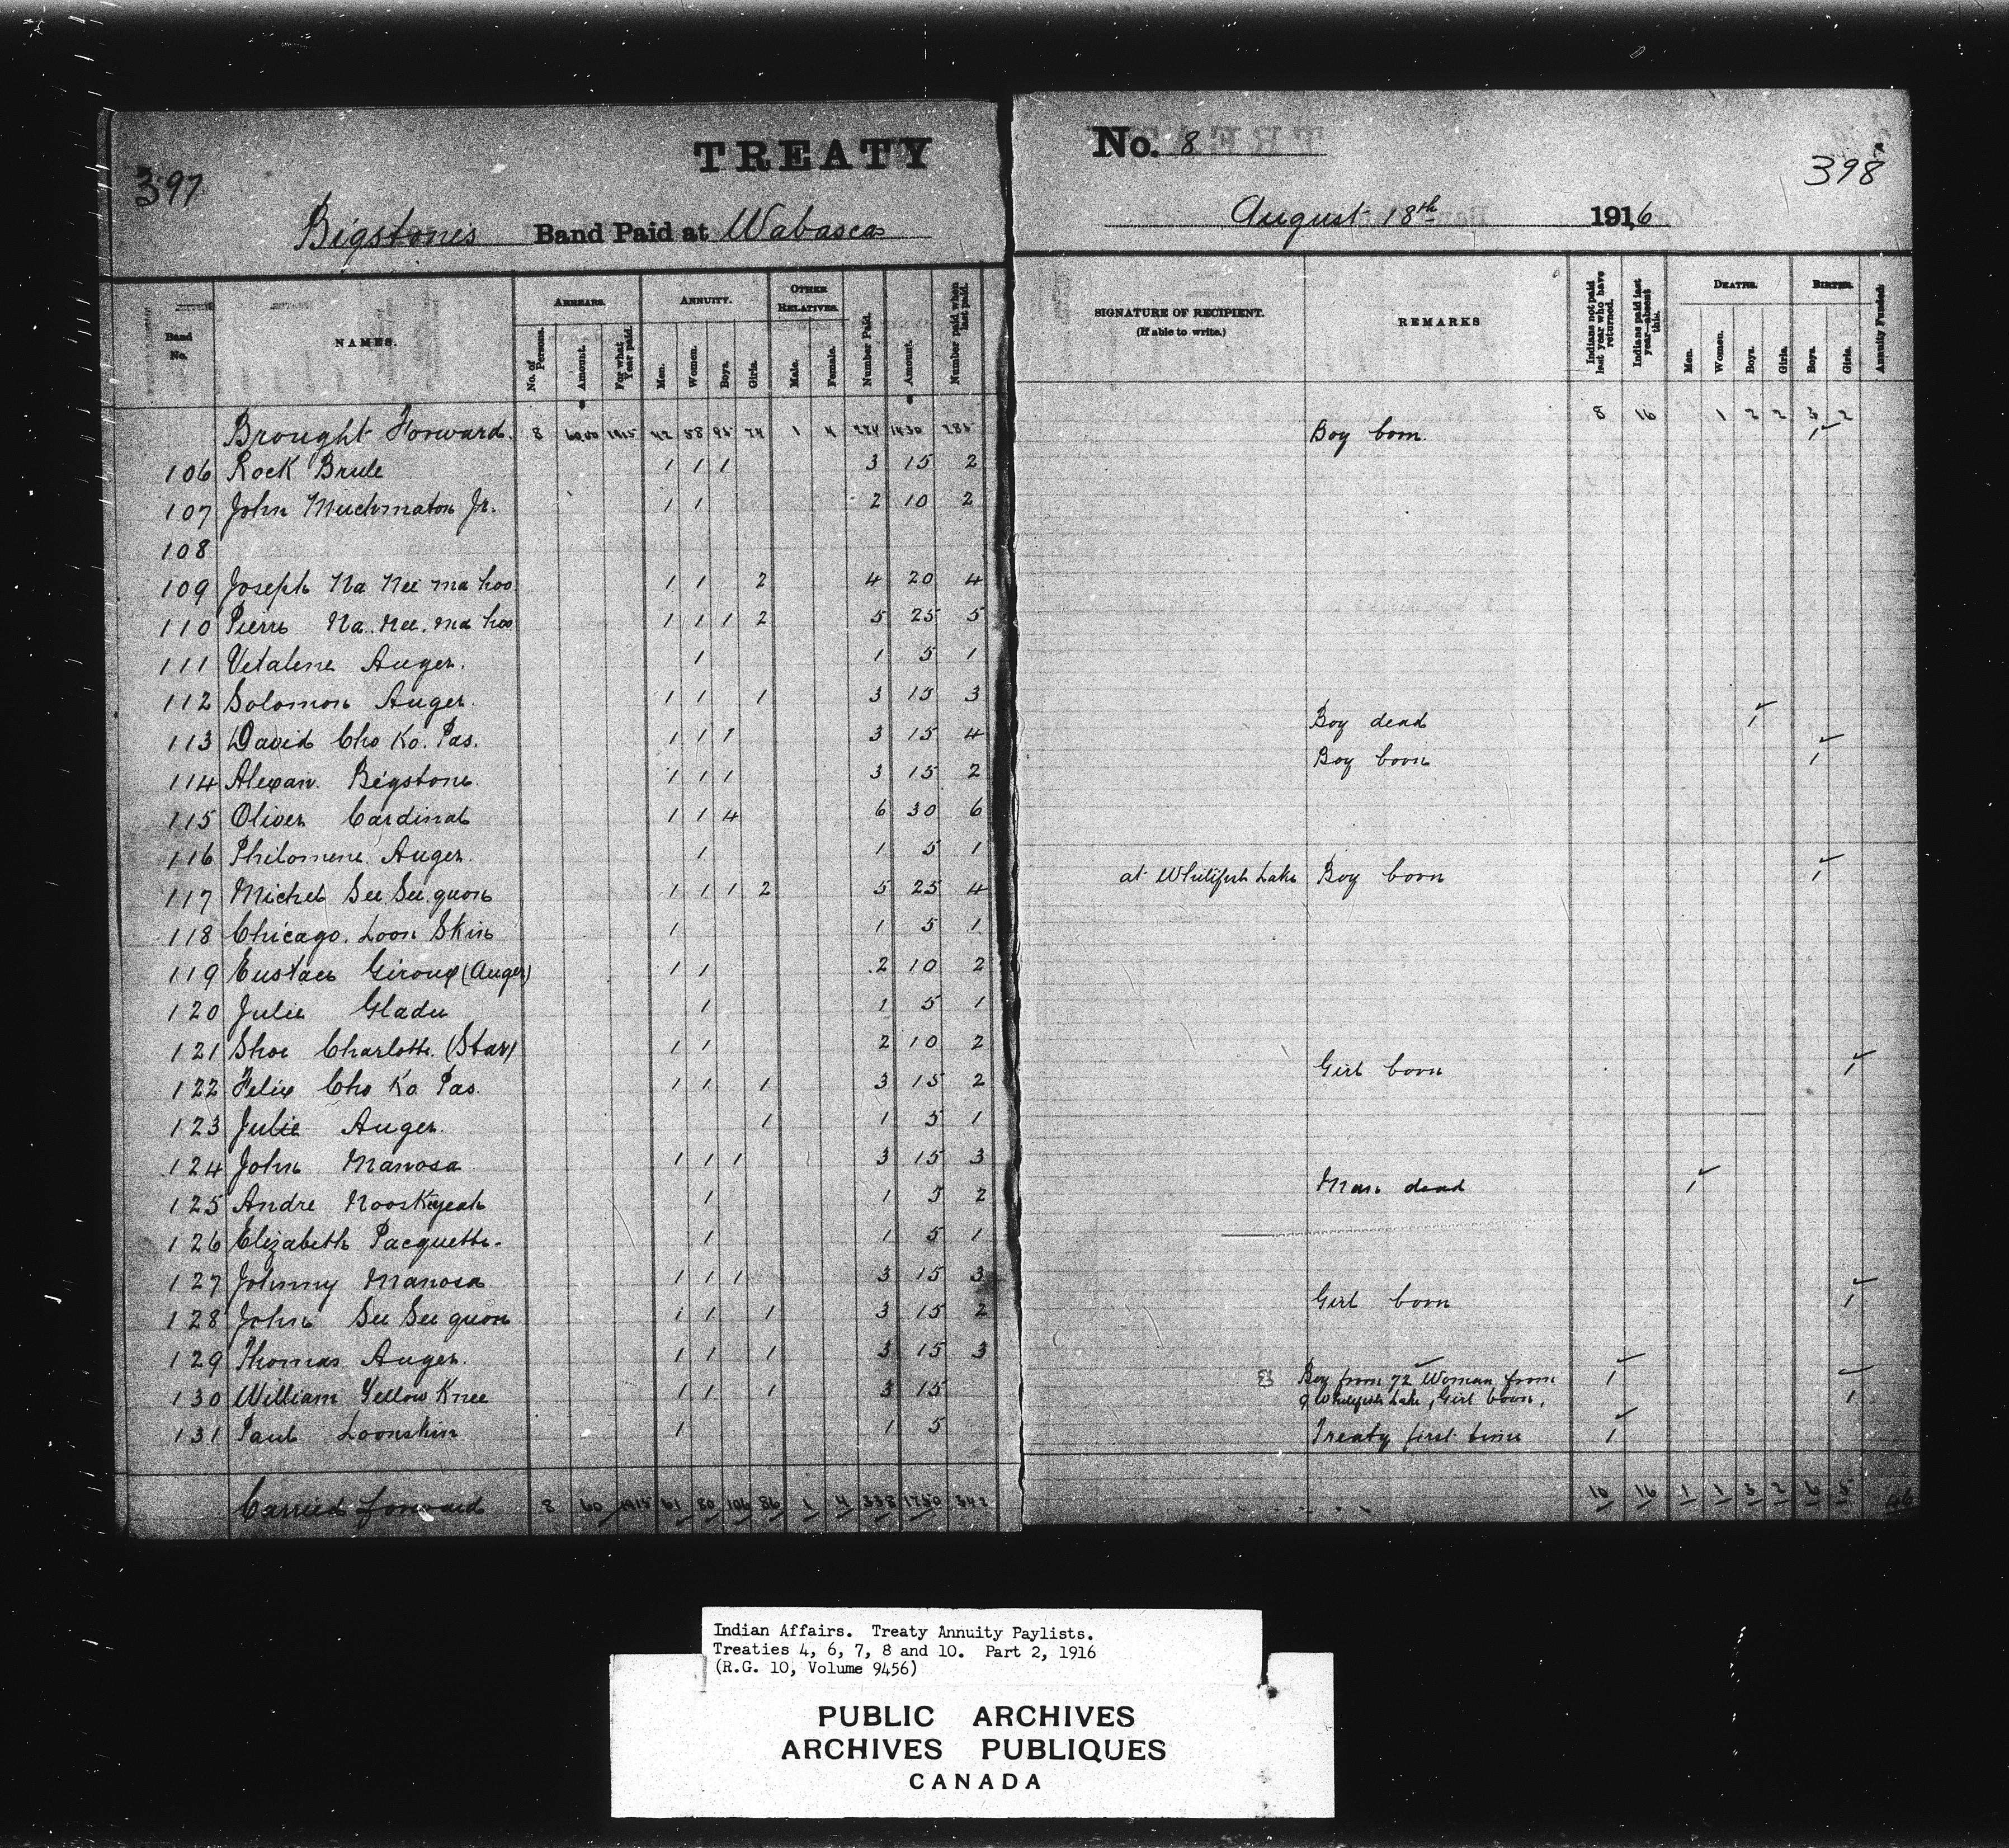 397
TREATY
No. 8
398
Bigstone's Band Paid at Wabasca
August 18th 1916
Band No.
NAMES.
ARREARS.
No. of Persons.
Amount.
For what Year paid.
ANNUITY.
Men.
Women.
Boys.
Girls.
OTHER RELATIVES.
Male.
Female.
Number Paid.
Amount.
Number paid when last paid.
SIGNATURE OF RECIPIENT.
(If able to write.)
REMARKS
Indians not paid last year who have returned.
Indians paid last year—absent this.
DEATHS.
Men.
Women.
Boys.
Girls.
BIRTHS.
Boys.
Girls.
Annuity Funded.
Brought Forward. 8 6000 1915 42 58 95 74 1 4 274 1430 285 8 16 1 2 2 3 2
106 Rock Brule 1 1 1 3 15 2 Boy born. 1
107 John Muchmaton Jr. 1 1 2 10 2
108
109 Joseph Na Nee ma hoo 1 1 2 4 20 4
110 Pierre Na. Nee. ma hoo 1 1 1 2 5 25 5
111 Vetalene Auger. 1 1 5 1
112 Solomon Auger. 1 1 1 3 15 3
113 David Cho Ko. Pas. 1 1 1 3 15 4 Boy dead 1
114 Alexan. Bigstone. 1 1 1 3 15 2 Boy born 1
115 Oliver Cardinal 1 1 4 6 30 6
116 Philomene Auger. 1 1 5 1
117 Michel See See quon 1 1 1 2 5 25 4 at Whitefish Lake Boy born 1
118 Chicago. Loon Skin 1 1 5 1
119 Eustace Giroux (Auger) 1 1 2 10 2
120 Julie Gladu 1 1 5 1
121 Shoe Charlotte. (Star) 1 1 2 10 2
122 Felix Cho Ko Pas. 1 1 1 3 15 2 Girl born 1
123 Julie Auger. 1 1 5 1
124 John Manosa 1 1 1 3 15 3
125 Andre Nooskeyeah 1 1 5 2 Man dead 1
126 Elizabeth Pacquette. 1 1 5 1
127 Johnny Manosa 1 1 1 3 15 3
128 John See See quon 1 1 1 3 15 2 Girl born 1
129 Thomas Auger. 1 1 1 3 15 3
130 William Yellow Knee 1 1 1 3 15 Boy from 72 Woman from 1
9 Whitefish Lake, Girl born, 1
131 Paul Loonskin 1 1 5 Treaty first time 1
Carried forward 8 60 1915 61 80 106 86 1 4 338 1750 342 10 16 1 1 3 2 6 5
Indian Affairs. Treaty Annuity Paylists.
Treaties 4, 6, 7, 8 and 10. Part 2, 1916
(R.G. 10, Volume 9456)
PUBLIC ARCHIVES
ARCHIVES PUBLIQUES
CANADA